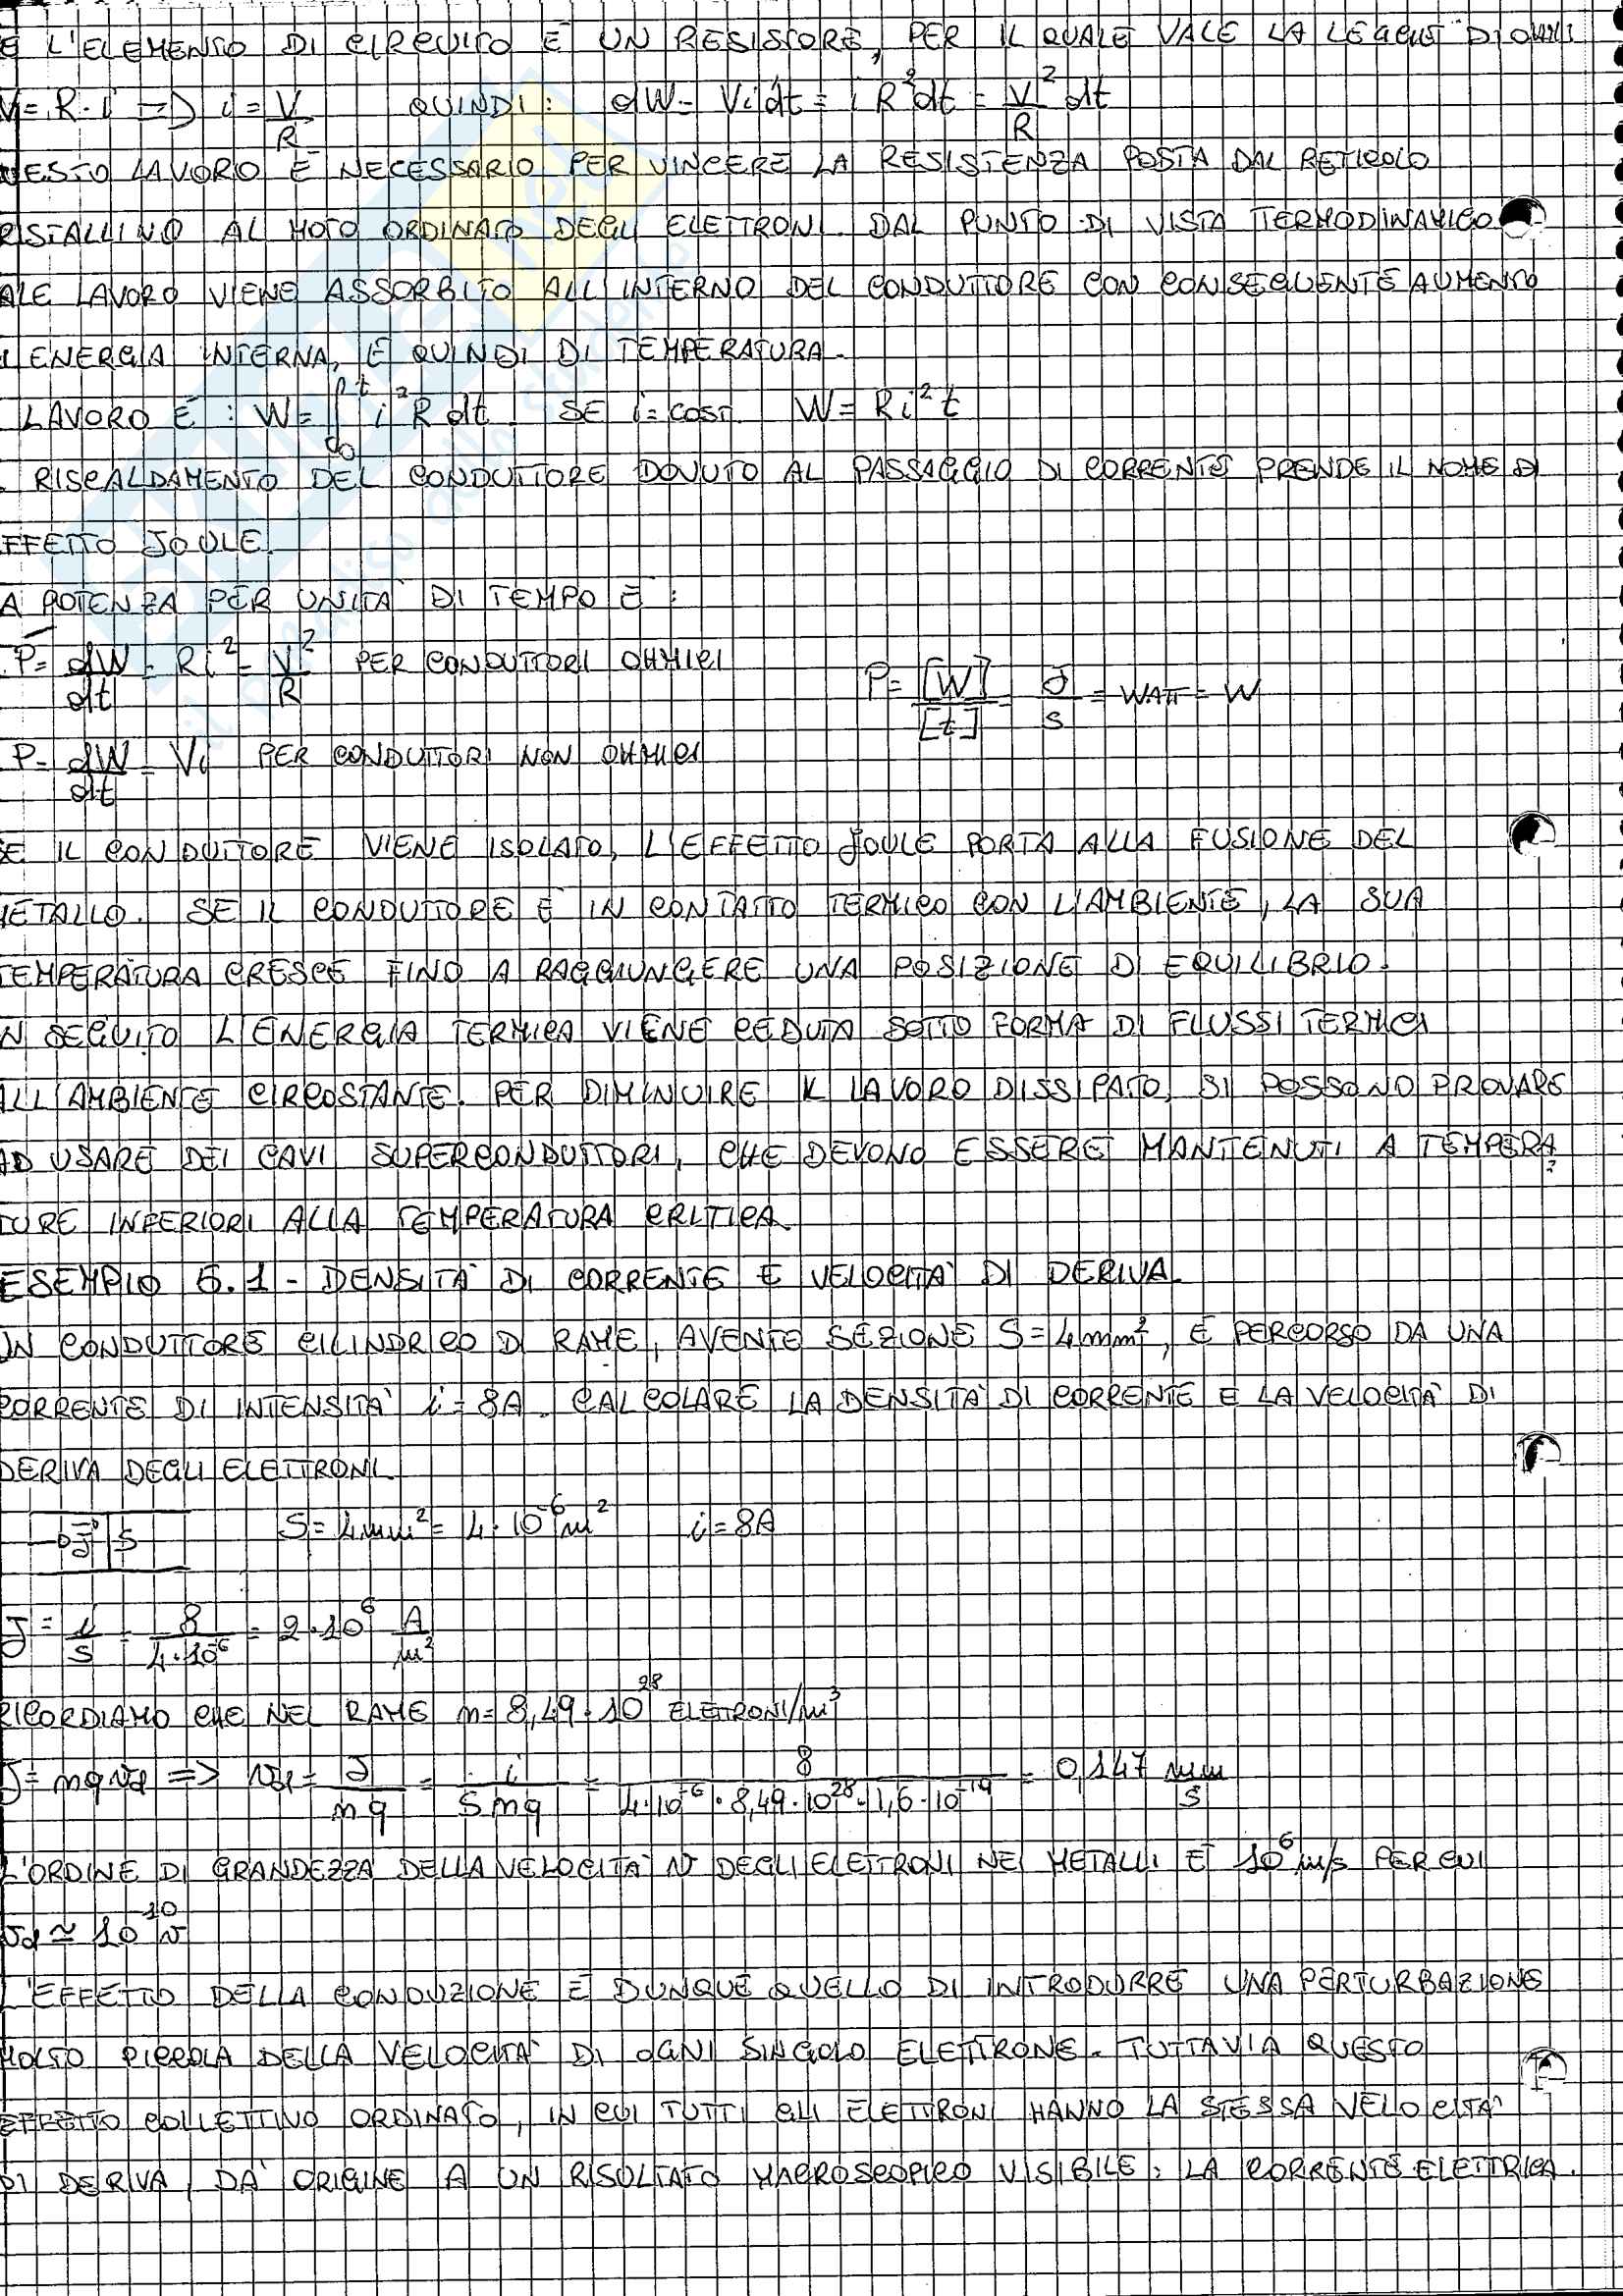 E L'ELEMENTO DI CIRCUITO È UN RESISTORE, PER IL QUALE VALE LA LEGGE DI OHM:
V = R · i => i = V/R QUINDI: dW = Vidt = i R²dt = V²/R dt
UESTO LAVORO È NECESSARIO PER VINCERE LA RESISTENZA POSTA DAL RETICOLO
RISTALLINO AL MOTO ORDINATO DEGLI ELETTRONI. DAL PUNTO DI VISTA TERMODINAMICO
ALE LAVORO VIENE ASSORBITO ALL'INTERNO DEL CONDUTTORE CON CONSEGUENTE AUMENTO
I ENERGIA INTERNA, E QUINDI DI TEMPERATURA.
LAVORO È: W = ∫₀ᵗ i²R dt. SE i = cost. W = Ri²t
RISCALDAMENTO DEL CONDUTTORE DOVUTO AL PASSAGGIO DI CORRENTE PRENDE IL NOME DI
EFFETTO JOULE.
A POTENZA PER UNITÀ DI TEMPO È:
P = dW/dt = Ri² = V²/R PER CONDUTTORI OHMICI P = [W]/[t] = J/s = WATT = W
P = dW/dt = Vi PER CONDUTTORI NON OHMICI
SE IL CONDUTTORE VIENE ISOLATO, L'EFFETTO JOULE PORTA ALLA FUSIONE DEL
METALLO. SE IL CONDUTTORE È IN CONTATTO TERMICO CON L'AMBIENTE, LA SUA
TEMPERATURA CRESCE FINO A RAGGIUNGERE UNA POSIZIONE DI EQUILIBRIO.
N SEGUITO L'ENERGIA TERMICA VIENE CEDUTA SOTTO FORMA DI FLUSSI TERMICI
ALL'AMBIENTE CIRCOSTANTE. PER DIMINUIRE IL LAVORO DISSIPATO, SI POSSONO PROVARE
AD USARE DEI CAVI SUPERCONDUTTORI, CHE DEVONO ESSERE MANTENUTI A TEMPERA
TURE INFERIORI ALLA TEMPERATURA CRITICA.
ESEMPIO 5.1 - DENSITÀ DI CORRENTE E VELOCITÀ DI DERIVA.
UN CONDUTTORE CILINDRICO DI RAME, AVENTE SEZIONE S = 4mm², È PERCORSO DA UNA
CORRENTE DI INTENSITÀ i = 8A. CALCOLARE LA DENSITÀ DI CORRENTE E LA VELOCITÀ DI
DERIVA DEGLI ELETTRONI.
J S S = 4mm² = 4·10⁻⁶m² i = 8A
J = i/S = 8/4·10⁻⁶ = 2·10⁶ A/m²
RICORDIAMO CHE NEL RAME n = 8,49·10²⁸ ELETTRONI/m³
J = nqvd => vd = J/nq = i/Snq = 8/4·10⁻⁶·8,49·10²⁸·1,6·10⁻¹⁹ = 0,147 mm/s
L'ORDINE DI GRANDEZZA DELLA VELOCITÀ v DEGLI ELETTRONI NEI METALLI È 10⁶ m/s PER CUI
vd ≃ 10⁻¹⁰ v
L'EFFETTO DELLA CONDUZIONE È DUNQUE QUELLO DI INTRODURRE UNA PERTURBAZIONE
MOLTO PICCOLA DELLA VELOCITÀ DI OGNI SINGOLO ELETTRONE. TUTTAVIA QUESTO
EFFETTO COLLETTIVO ORDINATO, IN CUI TUTTI GLI ELETTRONI HANNO LA STESSA VELOCITÀ
DI DERIVA, DÀ ORIGINE A UN RISULTATO MACROSCOPICO VISIBILE: LA CORRENTE ELETTRICA.